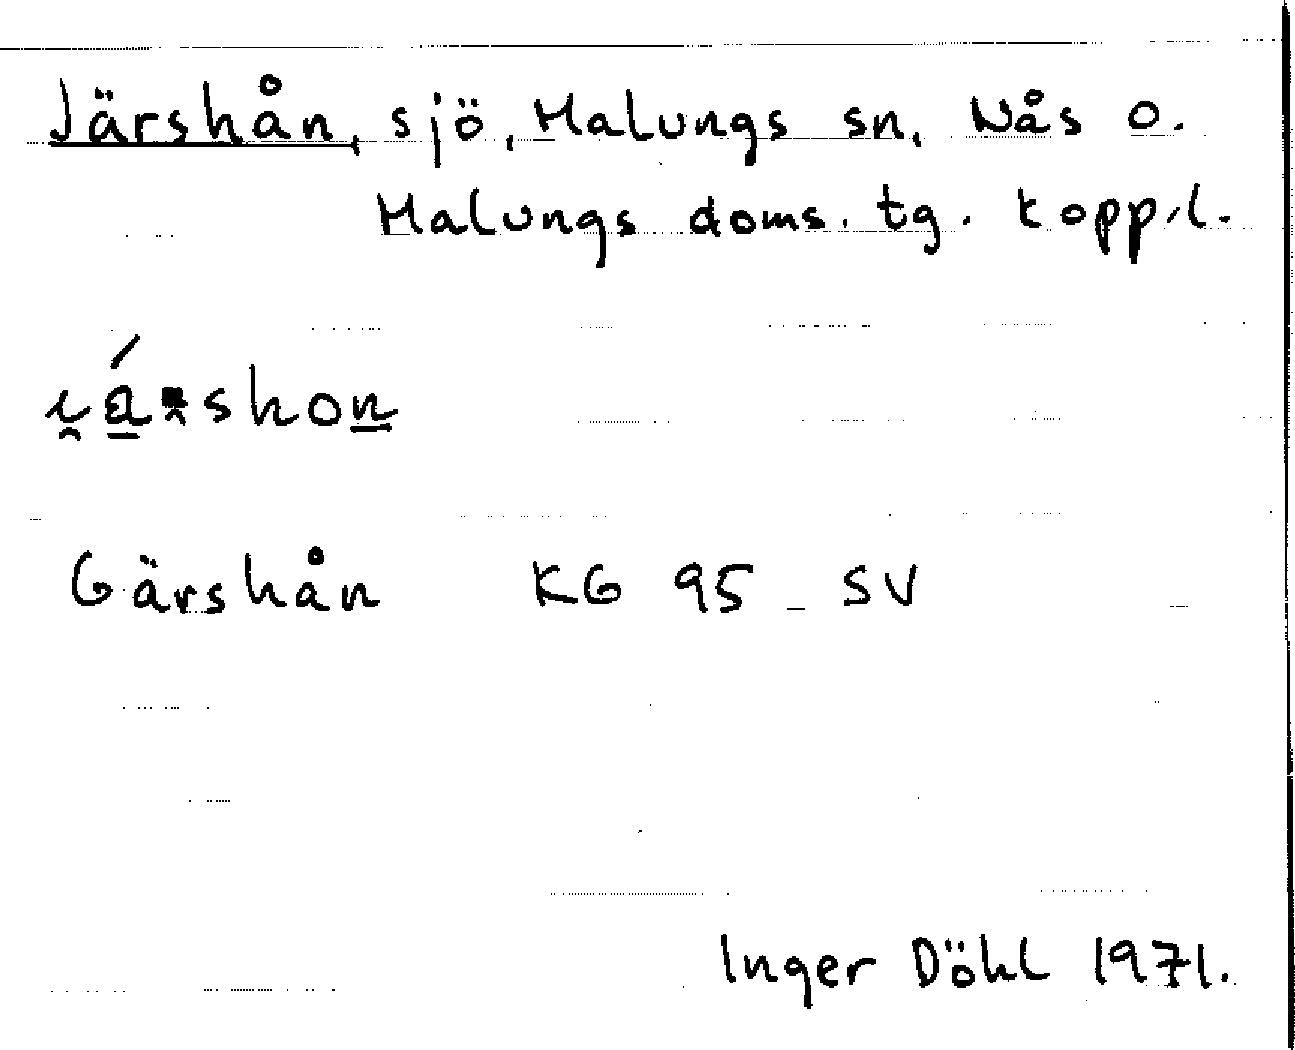 Järshån, sjö, Malungs sn, Nås o.
Malungs doms. tg. Kopp.l.
Gärshån KG 95 SV
Inger Döhl 1971.